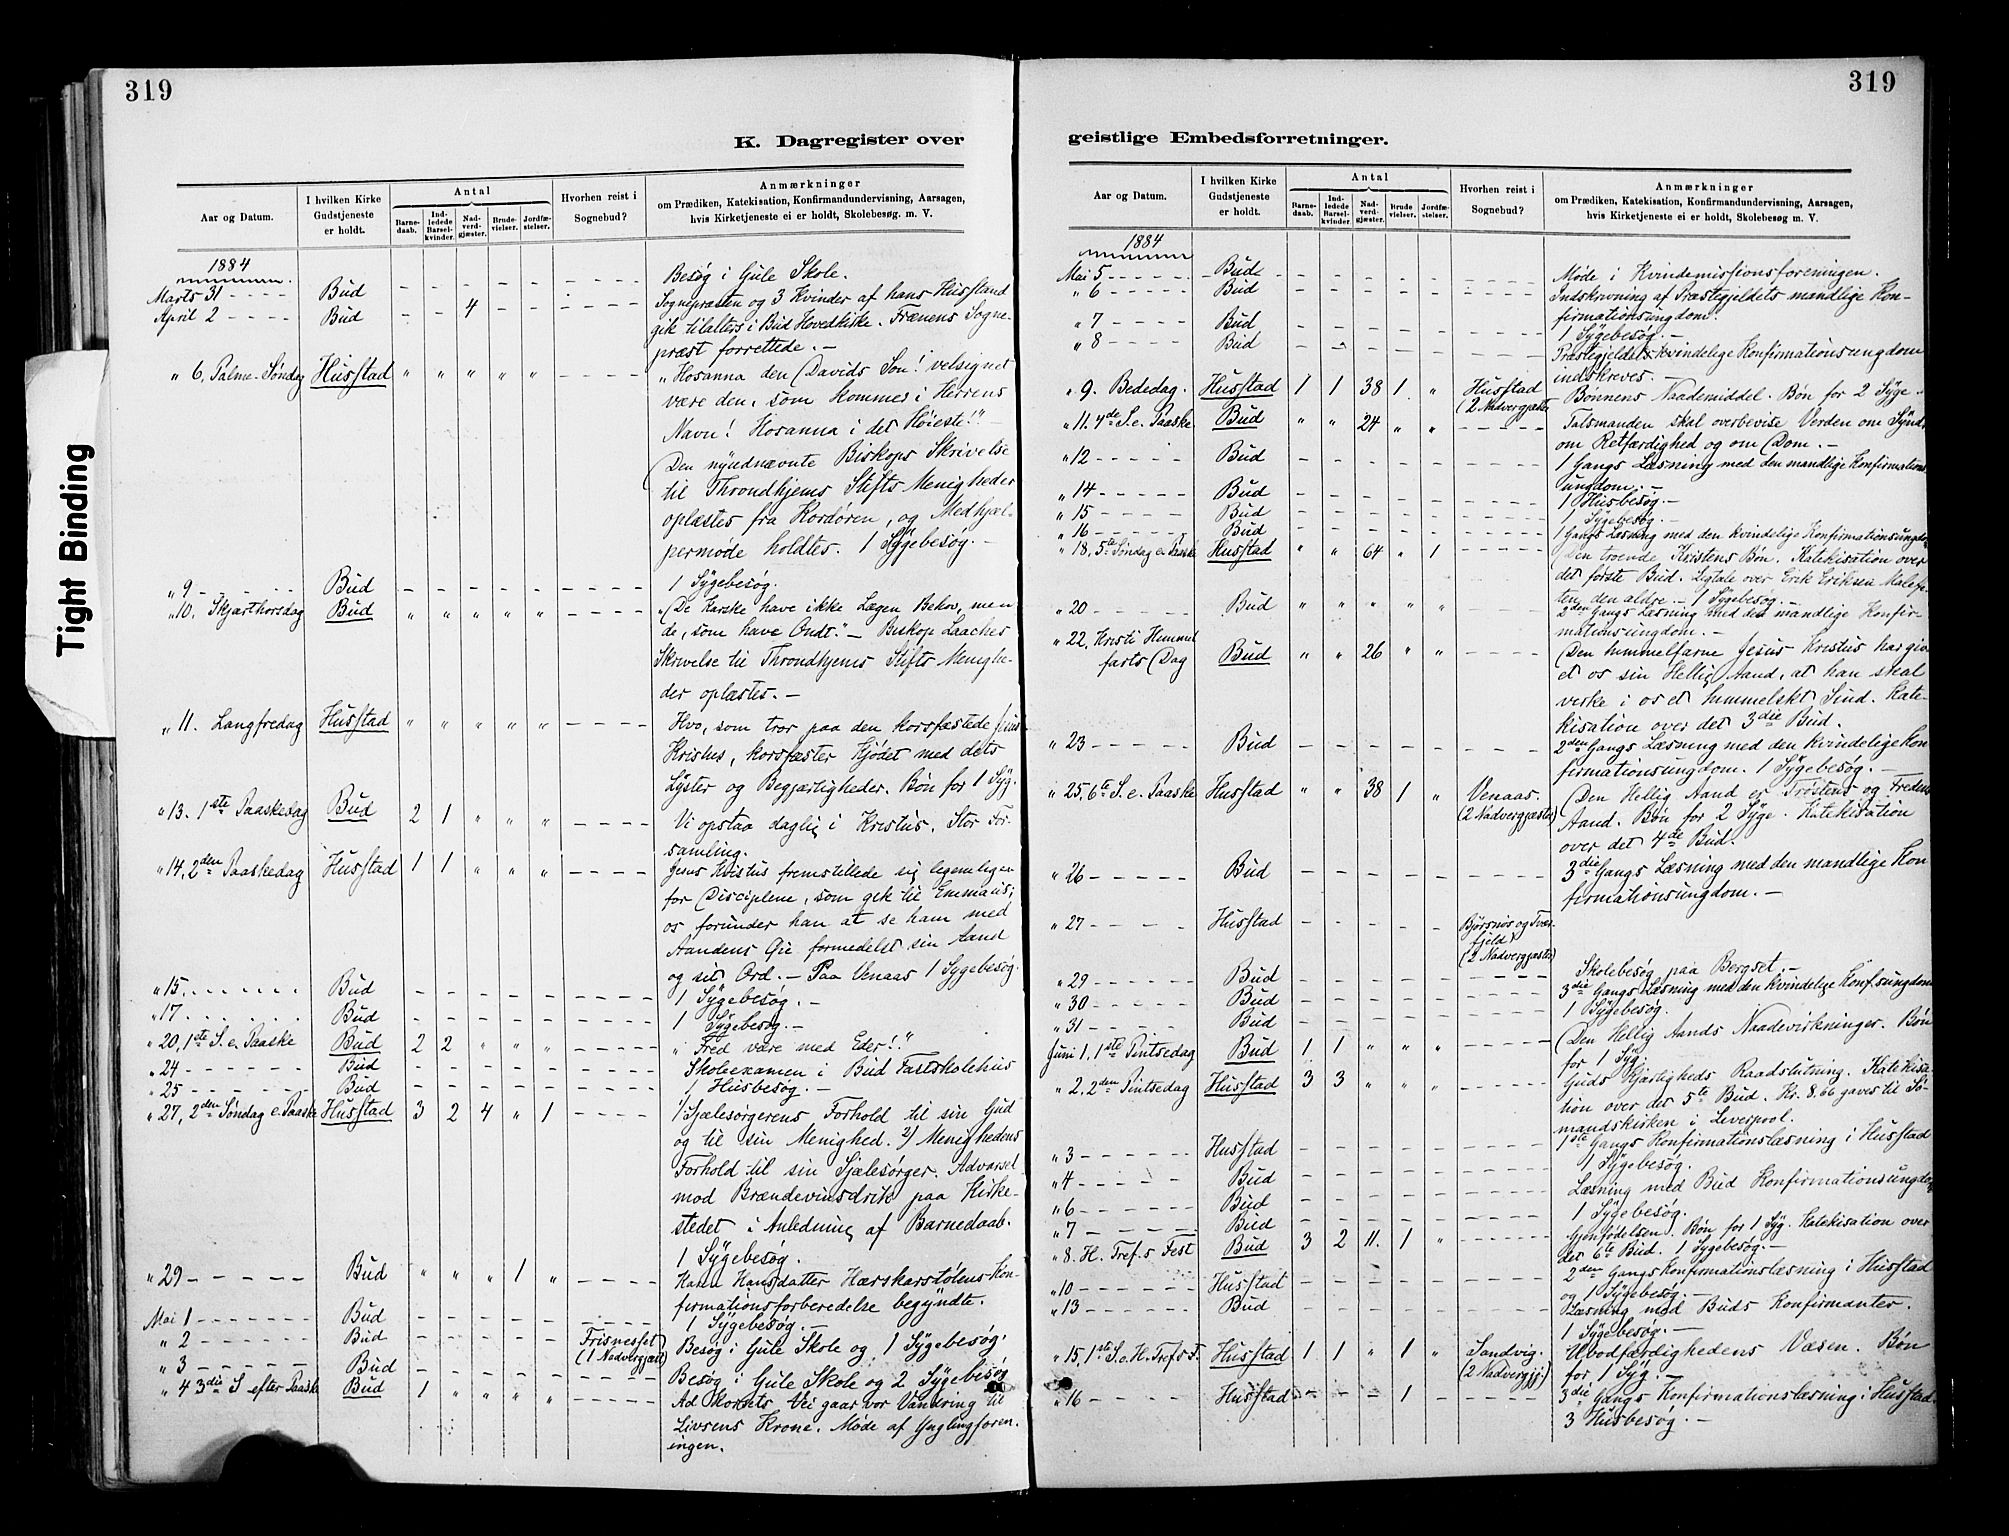 319
K. Dagregister over
Aar og Datum.
I hvilken Kirke Gudstjeneste er holdt.
Antal
Barne-daab.
Ind-ledede Barsel-kvinder.
Nad-verd-gjæster.
Brude-vielser.
Jordfæ-stelser.
Hvorhen reist i Sognebud?
Anmærkninger
om Prædiken, Katekisation, Konfirmandundervisning, Aarsagen,
hvis Kirketjeneste ei er holdt, Skolebesøg m. V.
1884
Marts 31 - - - - Bud - - - - - - - - - Besøg i Gule Skole.
April 2 - - - - Bud - - 4 - - - - - - Sognepræsten og 3 Kvinder af hans Husstand
gik tilalters i Bud Hovedkirke. Frænens Sogne-
præst forrettede. -
" 6, Palme-Søndag Husstad " " " " " - - - - "Hosanna den Davids Søn! velsignet
være den, som kommer i Herrens
Navn! Hosanna i det Høieste!" -
Den nyudnævnte Biskops Skrivelse
til Throndhjems Stifts Menigheder
oplæstes fra Kordøren, og Medhjæl-
permøde holdtes. 1 Sygebesøg. -
" 9 - - - - - Bud - - - - - - - - - 1 Sygebesøg.
" 10. Skjærthorsdag Bud " " " " " - - - - "De Karske have ikke Lægen Behov, men
de, som have Ondt." - Biskop Laaches
Skrivelse til Throndhjems Stifts Menighe-
der oplæstes. -
" 11. Langfredag Husstad " " " " " - - - - Hvo, som tror paa den korsfæstede Jesus
Kristus, korsfæster Kjødet med dets
Lyster og Begjærligheder. Bøn for 1 Syg.
" 13. 1ste Paaskedag Bud 2 1 " " " - - - - Vi opstaa daglig i Kristus. Stor For-
samling.
" 14, 2den Paaskedag Husstad 1 1 " " " - - - - Jesus Kristus fremstillede sig legemligen
for Disciplene, som gik til Emmaus;
os forunder han at se ham med
Aandens Øie formedelst sin Aand
og sit Ord. - Paa Venaas 1 Sygebesøg.
" 15. . . . . . Bud - - - - - - - - - 1 Sygebesøg. -
" 17 . . . . . Bud - - - - - - - - - 1 Sygebesøg. -
" 20, 1ste S. e. Paaske Bud 2 2 " " " - - - - "Fred være med Eder!"
" 24 - - - - - Bud - - - - - - - - - Skoleexamen i Bud Fastskolehus
" 25 - - - - - Bud - - - - - - - - - 1 Husbesøg. -
" 27, 2den Søndag e. Paaske Husstad 3 2 4 " 1 - - - - 1) Sjælesørgerens Forhold til sin Gud
og til sin Menighed. 2) Menighedens
Forhold til sin Sjælesørger. Advarsel
mod Brændevinsdrik paa Kirke-
stedet i Anledning af Barnedaab.
1 Sygebesøg.
" 29 - - - - - Bud " " " 1 " - - - - Karen Hansdatter Harskarstølens Kon-
firmationsforberedelse begyndte.
Mai 1 - - - - - Bud - - - - - - - - - 1 Sygebesøg. -
" 2 - - - - - Bud - - - - - Frisnesset (1 Nadvergjæst) Besøg i Gule Skole og 1 Sygebesøg.
" 3 - - - - - Bud - - - - - - - - - Besøg i Gule Skole og 2 Sygebesøg
" 4 3die S. efter Paaske Bud 1 " " " " - - - - Ad Korsets Vei gaar vor Vandring til
Livsens Krone. Møde af Ynglingforen-
ingen.
319
geistlige Embedsforretninger.
Aar og Datum.
I hvilken Kirke Gudstjeneste er holdt.
Antal
Barne-daab.
Ind-ledede Barsel-kvinder.
Nad-verd-gjæster.
Brude vielser.
Jordfæ-stelser.
Hvorhen reist i Sognebud?
Anmærkninger
om Prædiken, Katekisation, Konfirmandundervisning, Aarsagen,
hvis Kirketjeneste ei er holdt, Skolebesøg m. V.
1884
Mai 5 - - - - - Bud - - - - - - - - - Møde i Kvindemissionsforeningen.
" 6 - - - - Bud - - - - - - - - - Indskrivning af Præstegjeldets mandlige Kon-
firmationsungdom.
" 7 - - - - Bud - - - - - - - - - 1 Sygebesøg. -
" 8 - - - - Bud - - - - - - - - - Præstegjeldets kvindelige Konfirmationsungdom
indskreves. -
" 9. Bededag. Husstad 1 1 38 1 " Husstad (2 Nadvergjæster Bønnens Naademiddel. Bøn for 2 Syge.
" 11. 4de S. e. Paaske Bud " " 24 " " - - - - Talsmanden skal overbevise Verden om Synd,
om Retfærdighed og om Dom. -
" 12 - - - - Bud - - - - - - - - - 1 Gangs Læsning med den mandlige Konfirmations
ungdom. -
" 14 - - - - Bud - - - - - - - - - 1 Husbesøg. -
" 15 - - - - Bud - - - - - - - - - 1 Sygebesøg. -
" 16 - - - - Bud - - - - - - - - - 1 Gangs Læsning med den kvindelige Konfirmationsungdom
" 18, 5te Søndag e. Paaske Husstad " " 64 " 1 - - - - Den troende Kristens Bøn. Katekisation over
det første Bud. Ligtale over Erik Eriksen
ten, den ældre. - 1 Sygebesøg. -
" 20 - - - - Bud " " " " " - - - - 2den Gangs Læsning med den mandlige Konfir-
mationsungdom. -
" 22, Kristi Himmel
farts Dag Bud " " 26 " " - - - - Den himmelfarne Jesus Kristus har giv
et os sin Hellig Aand, at han skal
virke i os et himmelskt Sind. Kate-
kisation over det 3die Bud.
" 23 - - - - Bud - - - - - - - - - 2den Gangs Læsning med den kvindelige Kon
firmationsungdom. 1 Sygebesøg. -
" 25, 6te S. e. Paaske Husstad " " 38 1 " Venaas. (2 Nadvergjæster) Den Hellig Aand er Trøstens og Fredens
Aand. Bøn for 2 Syge. Katekisation
over det 4de Bud.
" 26 - - - - - Bud - - - - - - - - - 3die Gangs Læsning med den mandlige Kon
firmationsungdom. -
" 27 - - - - Husstad - - - - - Bjørsnøs og Tvær-
fjeld
(2 Nadvergjæster)
" 29 - - - - Bud - - - - - - - - - Skolebesøg paa Bergset. -
" 30 - - - - Bud - - - - - - - - - 3die Gangs Læsning med den kvindelige Konf.sungdom
" 31 - - - - Bud - - - - - - - - - 1 Sygebesøg.
Juni 1, 1ste Pintsedag Bud 1 1 " " " - - - - Den Hellig Aands Naadevirkninger. Bøn
for 1 Syg.
" 2, 2den Pintsedag Husstad 3 3 " " " - - - - Guds Kjærligheds Raadslutning. Katekisa-
tion over det 5te Bud. Kr. 8.66 gaves til Sø-
mandskirken i Liverpool.
" 3 - - - - - Husstad - - - - - - - - - 1ste Gangs Konfirmationslæsning i Husstad
1 Sygebesøg.
" 4 - - - - - Bud - - - - - - - - - Læsning med Bud Konfirmationsungdom
" 6 - - - - - Bud - - - - - - - - - 1 Sygebesøg.
" 7 - - - - - Bud - - - - - - - - -
" 8. H. Tref.s Fest Bud 3 2 11. 1 " - - - - Gjenfødelsen. Bøn for 1 Syg. Katekisation over
det 6te Bud. 1 Sygebesøg. -
" 10 - - - - Husstad - - - - - - - - - 2den Gangs Konfirmationslæsning i Husstad
og 1 Sygebesøg. -
" 13 - - - - Bud - - - - - - - - - Læsning med Buds Konfirmanter.
1 Sygebesøg. -
" 15, 1ste S. e. H. Tref.s F. Husstad 1 1 " 1 " Sandvig. (2 Nadvergj.) Ubodfærdighedens Væsen. Bøn
for 1 Syg.
" 16 - Husstad - - - 1 - - - - 3die Gangs Konfirmationslæsning i Husstad.
3 Husbesøg. -
Tight Binding